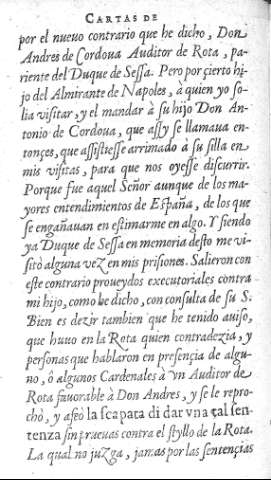 CARTAS DE
por el nueuo contrario que he dicho, Don
Andres de Cordoua Auditor de Rota, pa-
riente del Duque de Sessa. Pero por çierto hi-
jo del Almirante de Napoles, à quien yo so-
lia visitar, y el mandar à su hijo Don An-
tonio de Cordoua, que assy se llamaua en-
tonçes, que assistiesse arrimado à su silla en
mis visitas, para que nos oyesse discurrir.
Porque fue aquel Señor aunque de los ma-
yores entendimientos de España, de los que
se engañauan en estimarme en algo. Y siendo
ya Duque de Sessa en memoria desto me vi-
sitò alguna vez en mis prisiones. Salieron con
este contrario proueydos executoriales contra
mi hijo, como he dicho, con consulta de su S.
Bien es dezir tambien que he tenido auiso,
que huuo en la Rota quien contradezia, y
personas que hablaron en presençia de algu-
no, ò algunos Cardenales à vn Auditor de
Rota fauorable à Don Andres, y se le repro-
chò, y afeò la scapata di dar vna tal sen-
tenza sin prueuas contra el styllo de la Rota.
La qual no juzga, jamas por las sentençias